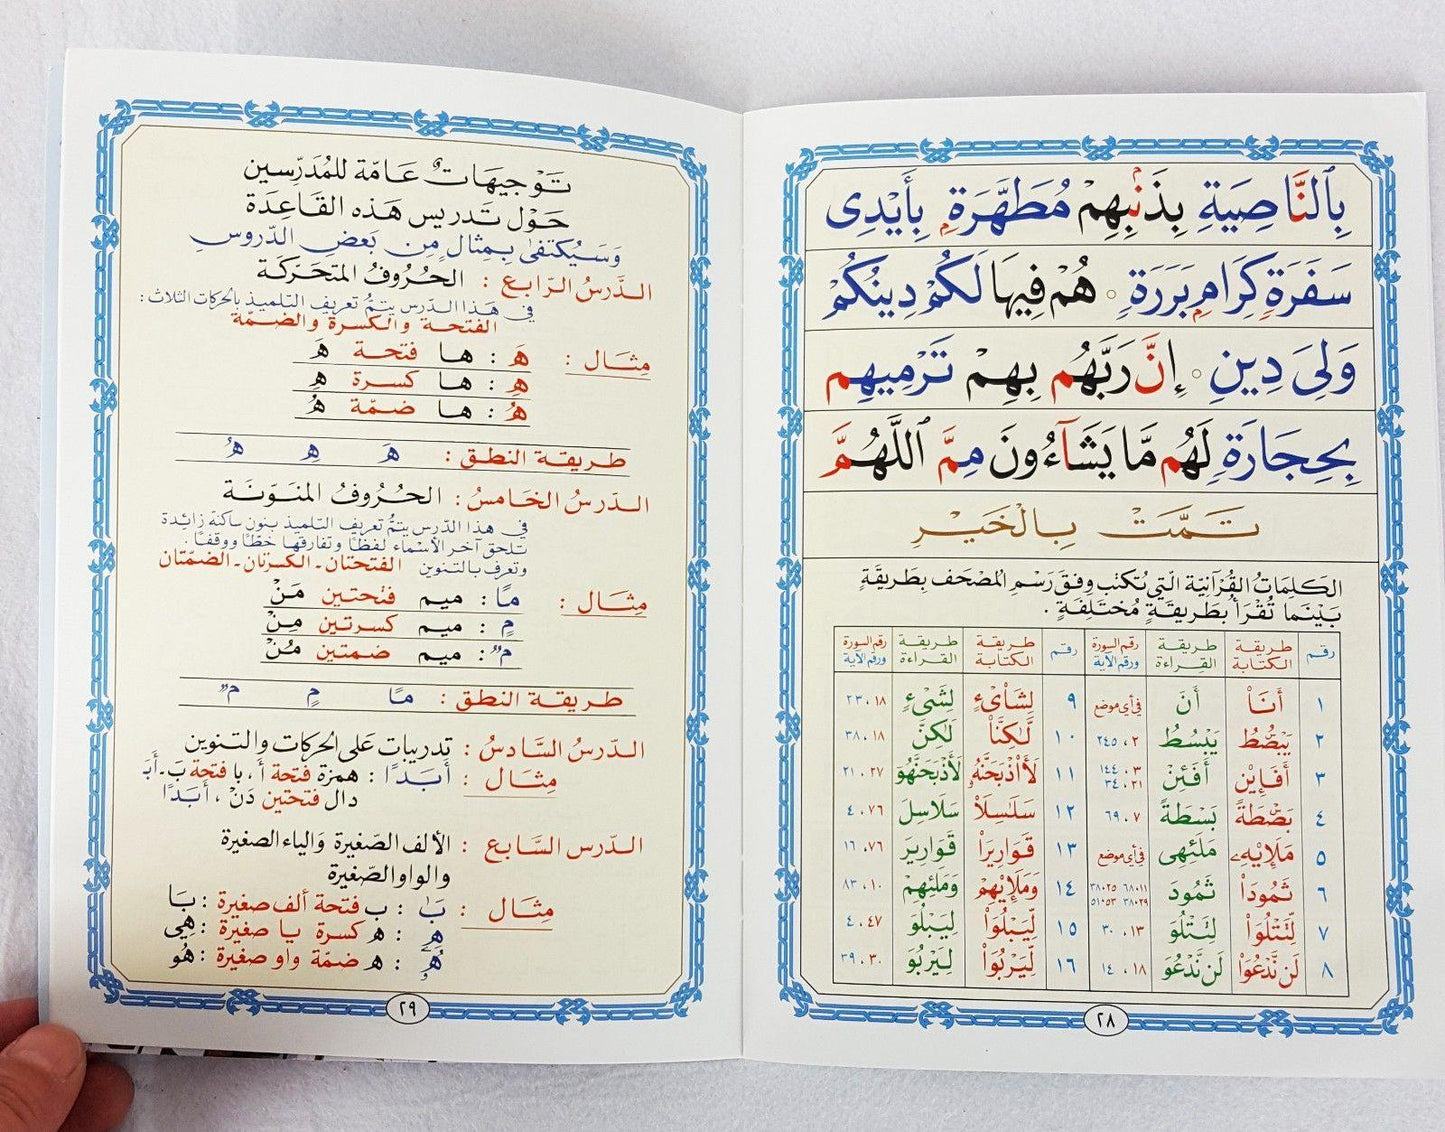 بِٱلنَّاصِيَةِ بِذَنۢبِهِمْ مُطَهَّرَةٍۭ بِأَيْدِى
سَفَرَةٍ كِرَامٍۭ بَرَرَةٍ ○ هُمْ فِيهَا لَكُمْ دِينُكُمْ
وَلِىَ دِينِ ○ إِنَّ رَبَّهُم بِهِمْ تَرْمِيهِم
بِحِجَارَةٍ لَهُم مَّا يَشَآءُونَ مِمَّ ٱللَّهُمَّ
تَمَّتْ بِالْخَيْرِ
الكَلِمَاتُ القُرْآنِيَّة الَّتِي تُكْتَب وِفْقَ رَسْمِ المُصْحَف بِطَرِيقَةٍ
بَيْنَمَا تُقْرَأُ بِطَرِيقَةٍ مُخْتَلِفَةٍ .
رقم طريقة الكتابة طريقة القراءة رقم السورة ورقم الآية رقم طريقة الكتابة طريقة القراءة رقم السورة ورقم الآية
١ أَنَا۠ أَنَ في أي موضع ٩ لِشَا۟ىْءٍ لِشَىْءٍ ١٨ ، ٢٣
٢ يَبْصُۜطُ يَبْسُطُ ٢ ، ٢٤٥ ١٠ لَّٰكِنَّا۠ لَٰكِنَّ ١٨ ، ٣٨
٣ أَفَإِي۟ن أَفَئِنْ ٣ ، ١٤٤ ٢١ ، ٣٤ ١١ لَأَا۟ذْبَحَنَّهُۥ لَأَذْبَحَنَّهُو ٢٧ ، ٢١
٤ بَصْۜطَةً بَسْطَةً ٧ ، ٦٩ ١٢ سَلَٰسِلَا۟ سَلَاسِلَ ٧٦ ، ٤
٥ مَلَإِي۟هِۦ مَلَئِهِى في أي موضع ١٣ قَوَارِيرَا۟ قَوَارِيرَ ٧٦ ، ١٦
٦ ثَمُودَا۟ ثَمُودَ ١١ ، ٦٨ ٢٥ ، ٣٨ ٢٩ ، ٣٨ ٥٣ ، ٥١ ١٤ وَمَلَإِي۟هِمْ وَمَلَئِهِمْ ١٠ ، ٨٣
٧ لِّتَتْلُوَا۟ لِتَتْلُوَ ١٣ ، ٣٠ ١٥ لِّيَبْلُوَا۟ لِيَبْلُوَ ٤٧ ، ٤
٨ لَن نَّدْعُوَا۟ لَن نَّدْعُوَ ١٨ ، ١٤ ١٦ لِّيَرْبُوَا۟ لِيَرْبُوَ ٣٠ ، ٣٩
٢٨
تَوْجِيهَاتٌ عَامَّة للمُدَرِّسِين
حَوْل تَدريس هَذه القَاعِدَة
وَسَيُكتفىٰ بِمِثالٍ مِن بَعضِ الدّروسِ
الدَّرسُ الرّابع : الحُرُوفُ المتَحَرّكَة
في هَذا الدّرس يتمُّ تعريف التلميذ بالحركات الثلاث :
الفتحة والكسرة والضمّة
مِثَال : هَ : ها فتحة هَ
هِ : ها كسرة هِ
هُ : ها ضمّة هُ
طريقة النطق : هَ هِ هُ
الدّرسُ الخَامسُ : الحُروفُ المنَوّنَة
في هذا الدّرس يتمُّ تعريف التلميذ بنونٍ ساكنة زائدة
تلحق آخر الأسْماء لفظًا وتفارقها خطًّا ووقفًا .
وتعرف بالتنوين الفتحتان - الكسرتان - الضمّتان
مِثَال : مًا : ميم فتْحتين مَنْ
مٍ : ميم كسرتين مِنْ
مٌ : ميم ضمتين مُنْ
طريقة النطق : مًا مٍ مٌ
الدّرسُ السَّادسُ : تدريبات على الحركات والتنوين
مِثَال : أَبَدًا : همزة فتحة أَ ، با فتحة بَ - أَبَ
دال فتحتين دَنْ ، أَبَدًا
الدّرس السَّابع : الألف الصّغيرة والياء الصغيرة
والواو الصّغيرة
مِثَال : بَٰ : ب فتحة ألف صغيرة : بَا
هِۦ : ه كسرة يا صغيرة : هِي
هُۥ : ه ضمّة واو صغيرة : هُو
٢٩